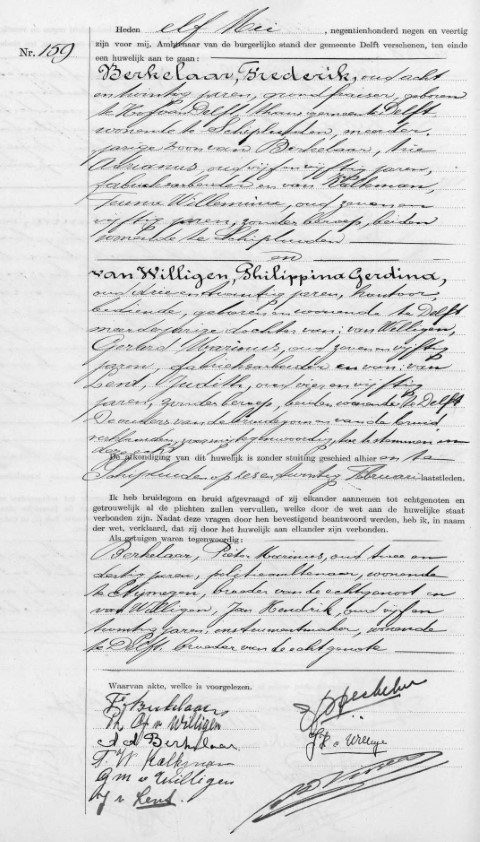 Nr. 159
Heden elf Mei, negentienhonderd negen en veertig
zijn voor mij, Ambtenaar van de burgerlijke stand der gemeente Delft verschenen, ten einde
een huwelijk aan te gaan:
Berkelaar, Frederik, oud acht
en twintig jaren, grondfraiser, geboren
te Hof van Delft, thans gemeente Delft
wonende te Schipluiden, meerder-
jarige zoon van Berkelaar,
Adrianus, oud vijf en vijftig jaren,
fabrieksarbeider en van Kalkman,
Teuna Willemina, oud zeven en
vijftig jaren, zonder beroep, beiden
wonende te Schipluiden
en
van Willigen, Philippina Gerdina,
oud drie en twintig jaren, kantoor-
bediende, geboren en wonende te Delft
meerderjarige dochter van: van Willigen,
Gerard Marinus, oud zeven en vijftig
jaren, fabrieksarbeider en van: van
Lent, Judith, oud vier en vijftig
jaren, zonder beroep, beiden wonende te Delft
De ouders van de bruidegom en van de bruid
verklaarden, toe te stemmen in
deze echt
De afkondiging van dit huwelijk is zonder stuiting geschied alhier en te
Schipluiden op zes en twintig Februari laatstleden.
Ik heb bruidegom en bruid afgevraagd of zij elkander aannemen tot echtgenoten en
getrouwelijk al de plichten zullen vervullen, welke door de wet aan de huwelijke staat
verbonden zijn. Nadat deze vragen door hen bevestigend beantwoord werden, heb ik, in naam
der wet, verklaard, dat zij door het huwelijk aan elkander zijn verbonden.
Als getuigen waren tegenwoordig:
Berkelaar, Pieter Marinus, oud twee en
dertig jaren, politieambtenaar, wonende
te Nijmegen, broeder van de echtgenoot en
van Willigen, Jan Hendrik, oud vijf en
twintig jaren, instrumentmaker, wonende
te Delft, broeder van de echtgenote
Waarvan akte, welke is voorgelezen.
F. Berkelaar
Ph. G. v Willigen
A d Berkelaar
T. W Kalkman
G M v Willigen
J v Lent
Berkelaar
J H v Willigen